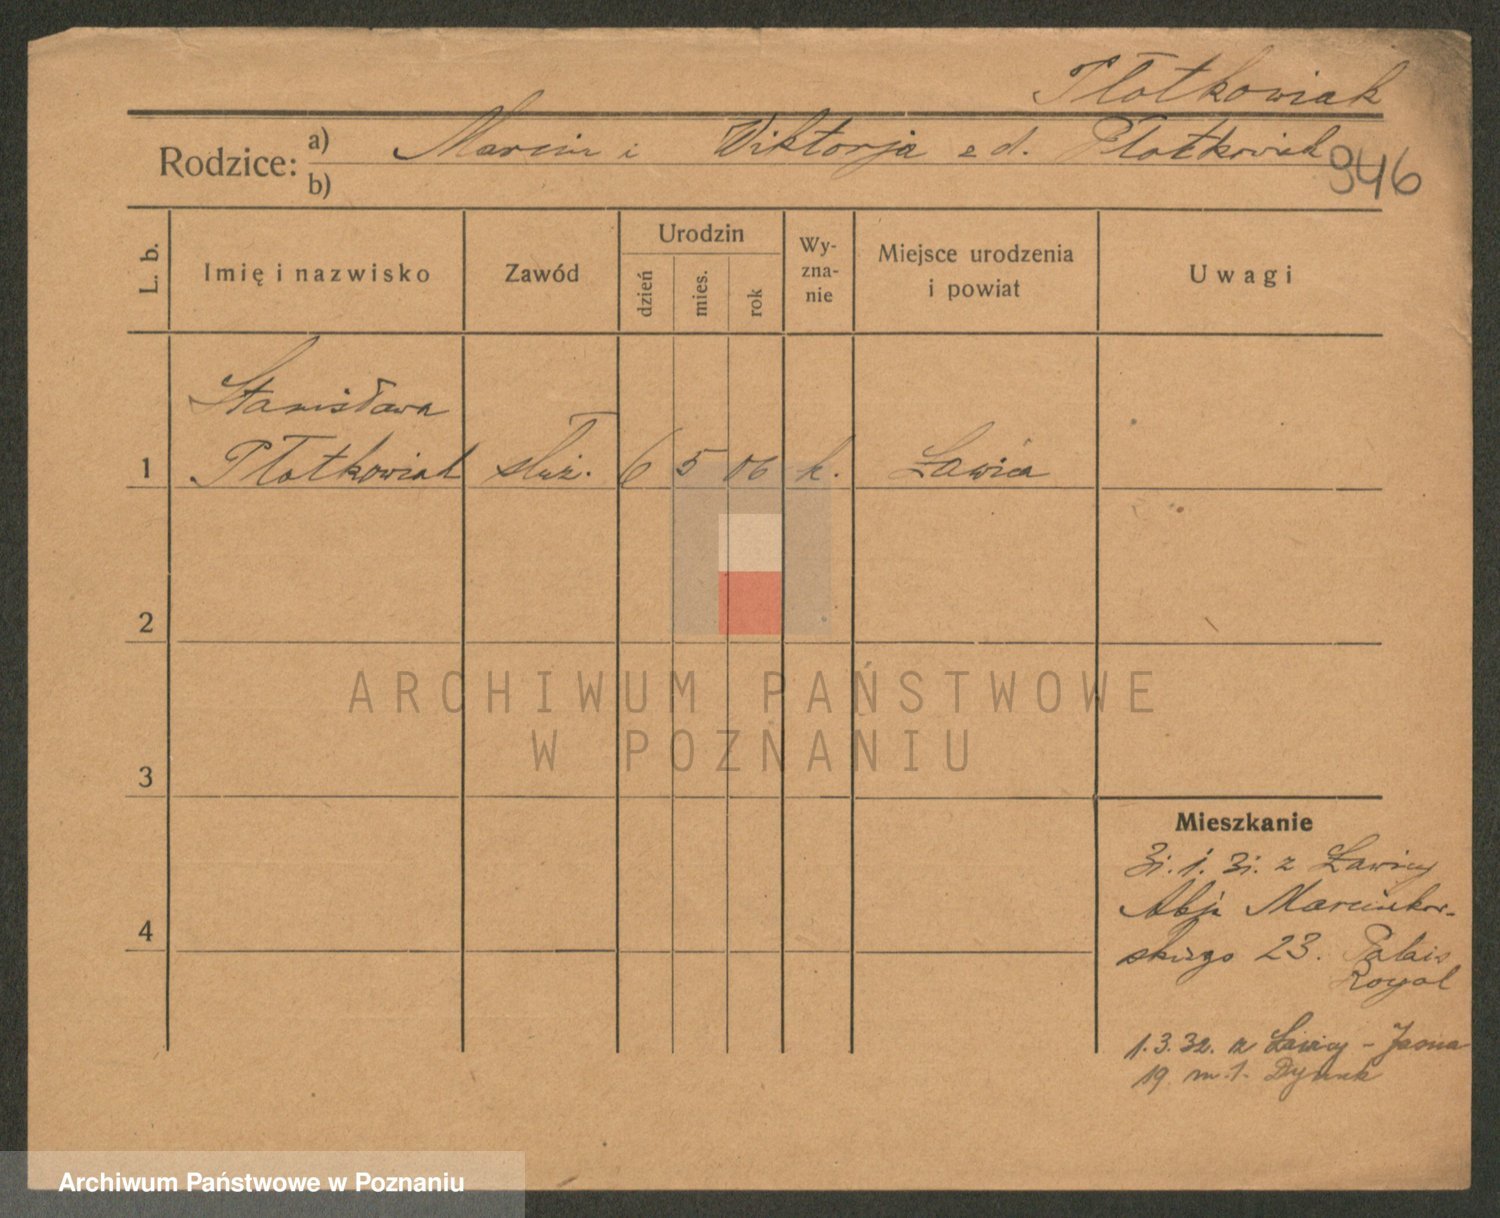 Płotkowiak
Rodzice: a) Marcin i Wiktorja z d. Płotkowiak
b)
946
L. b.
Imię i nazwisko
Zawód
Urodzin
dzień
mies.
rok
Wy-
zna-
nie
Miejsce urodzenia
i powiat
Uwagi
Stanisława
1 Płotkowiak służ. 6 5 06 k. Ławica
2
3
4
ARCHIWUM PAŃSTWOWE
W POZNANIU
Mieszkanie
31.1.31. z Ławicy
Alja Marcinkow-
skiego 23. Palais
Royal
1.3.32. z Ławicy - Jasna
19 m.1.
Archiwum Państwowe w Poznaniu